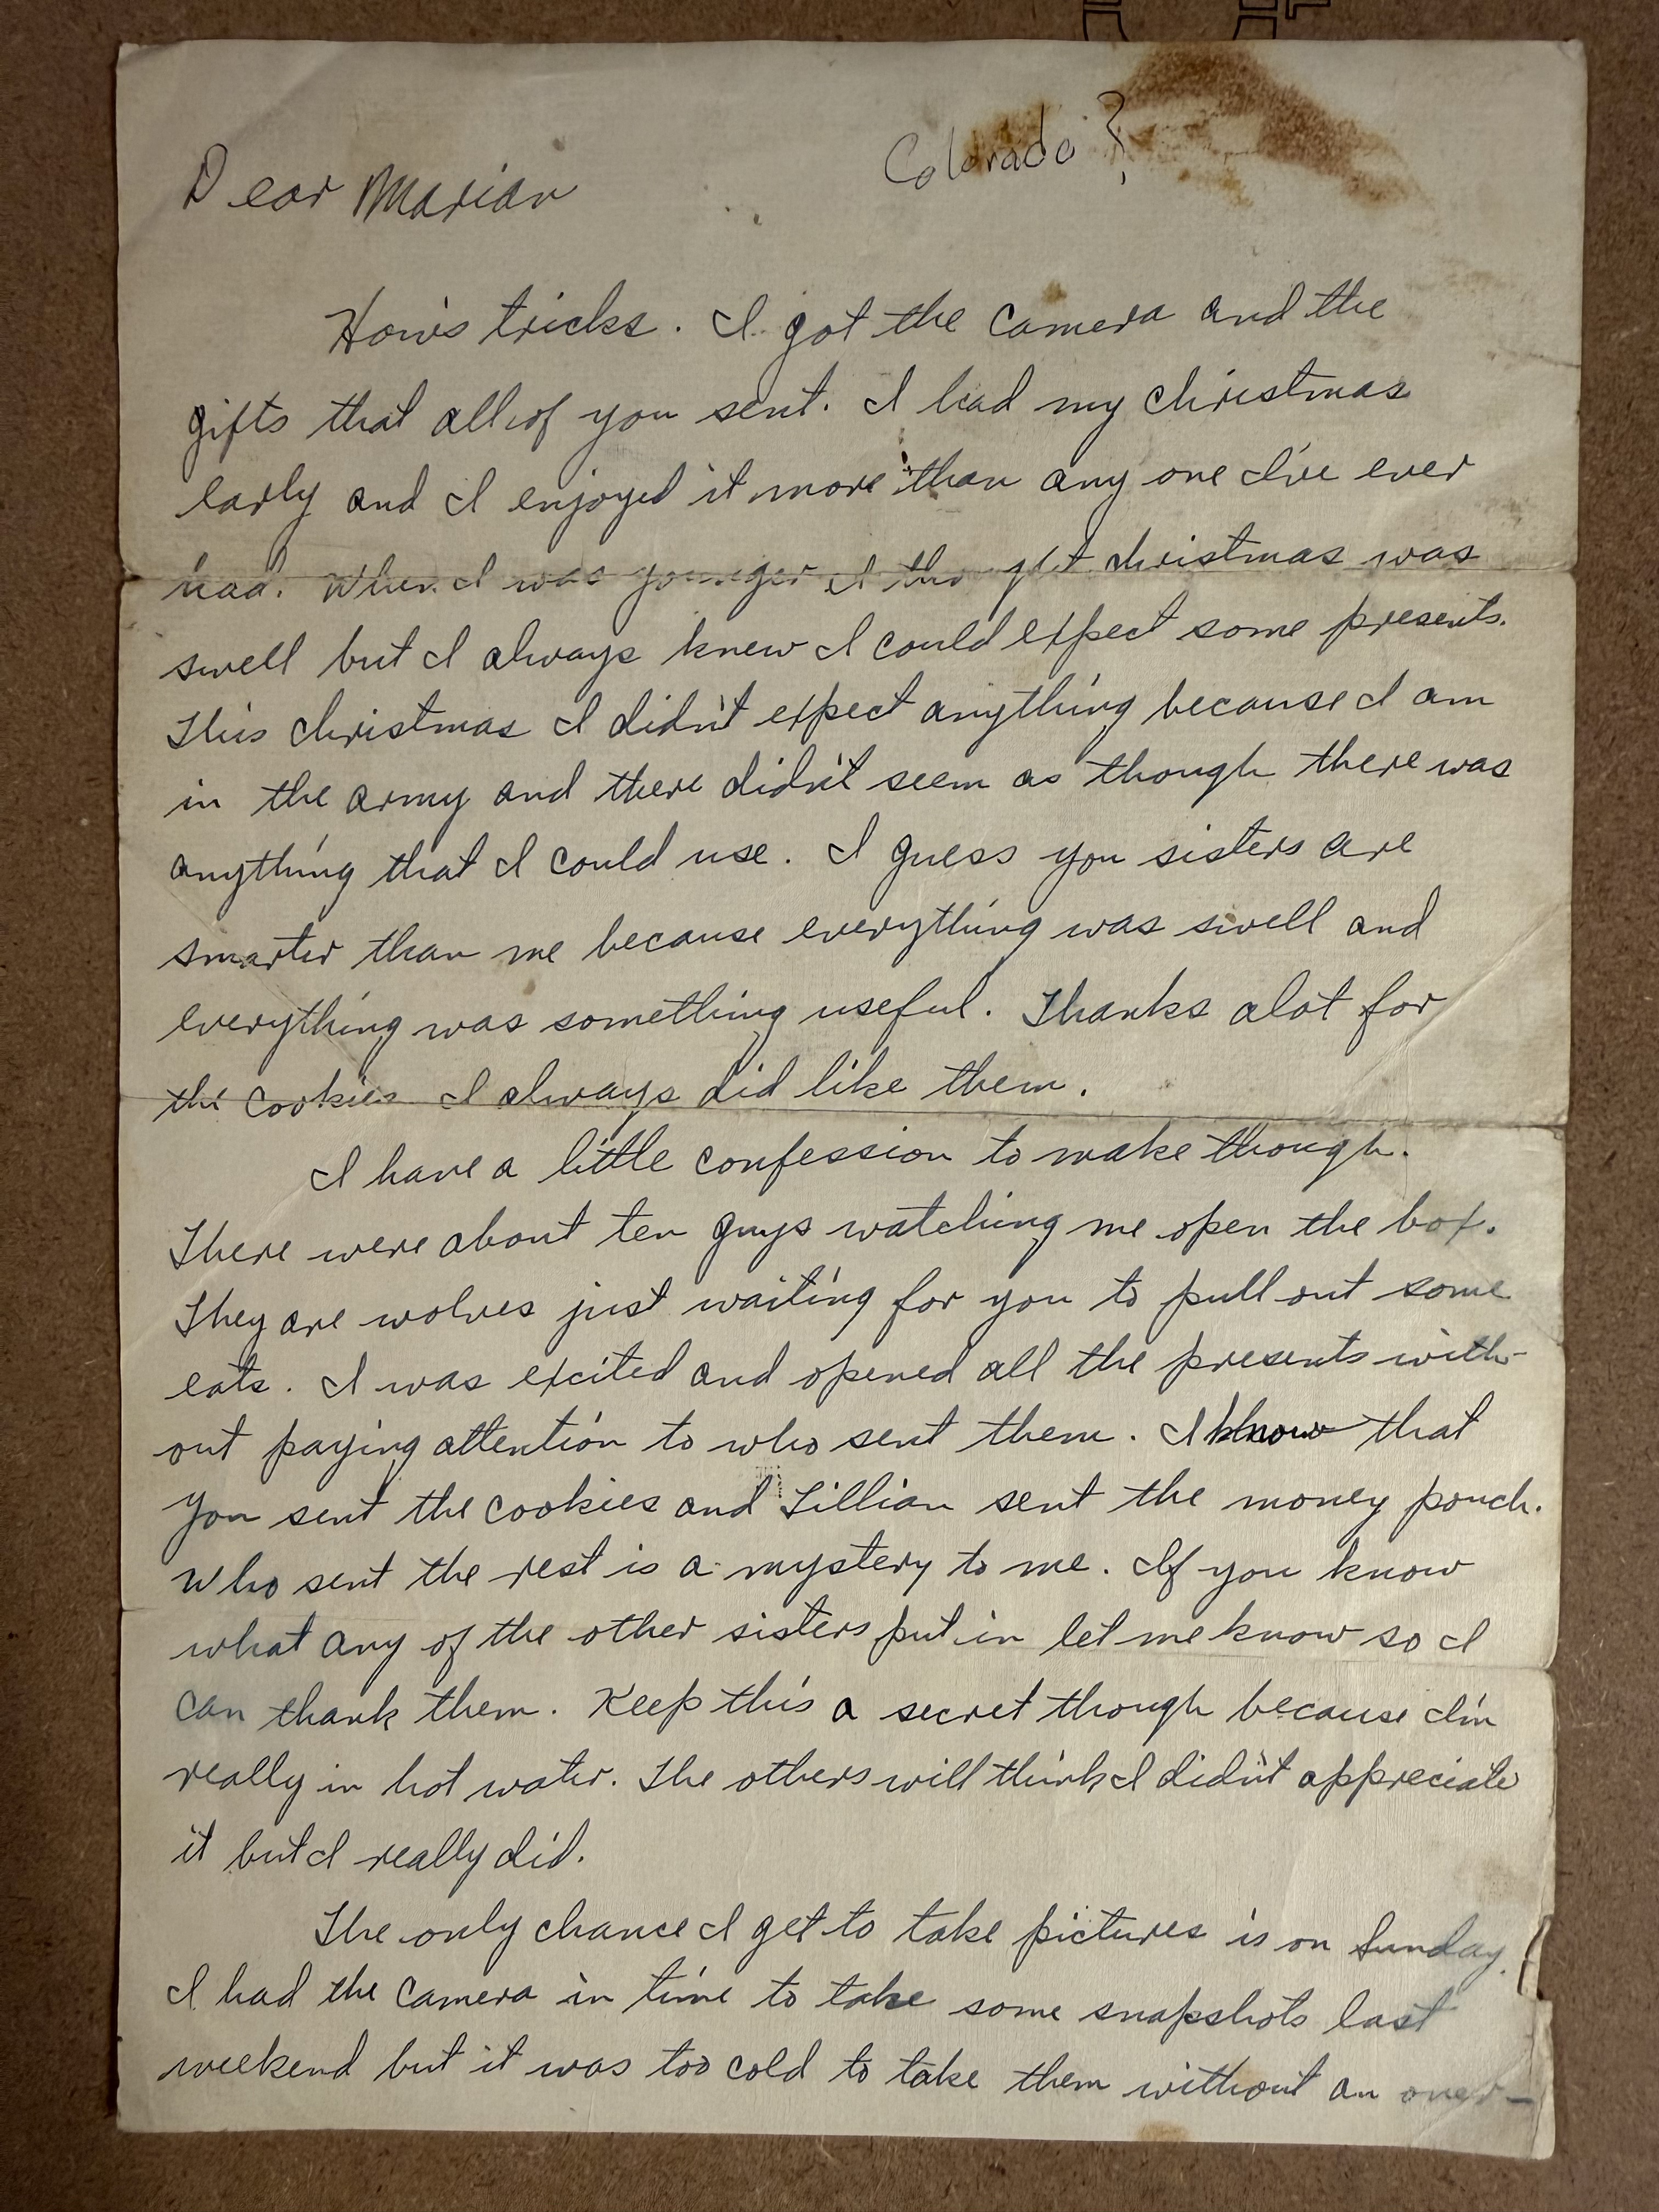 Colorado?
Dear Marian
How's tricks. I got the camera and the
gifts that all of you sent. I had my christmas
early and I enjoyed it more than any one I've ever
had. When I was younger I thought christmas was
swell but I always knew I could expect some presents.
This christmas I didn't expect anything because I am
in the army and there didn't seem as though there was
anything that I could use. I guess you sisters are
smarter than me because everything was swell and
everything was something useful. Thanks alot for
the cookies I always did like them.
I have a little confession to make though.
There were about ten guys watching me open the box.
They are wolves just waiting for you to pull out some
eats. I was excited and opened all the presents with-
out paying attention to who sent them. I know that
you sent the cookies and Lillian sent the money pouch.
Who sent the rest is a mystery to me. If you know
what any of the other sisters put in let me know so I
can thank them. Keep this a secret though because I'm
really in hot water. The others will think I didn't appreciate
it but I really did.
The only chance I get to take pictures is on Sunday.
I had the camera in time to take some snapshots last
weekend but it was too cold to take them without an over-